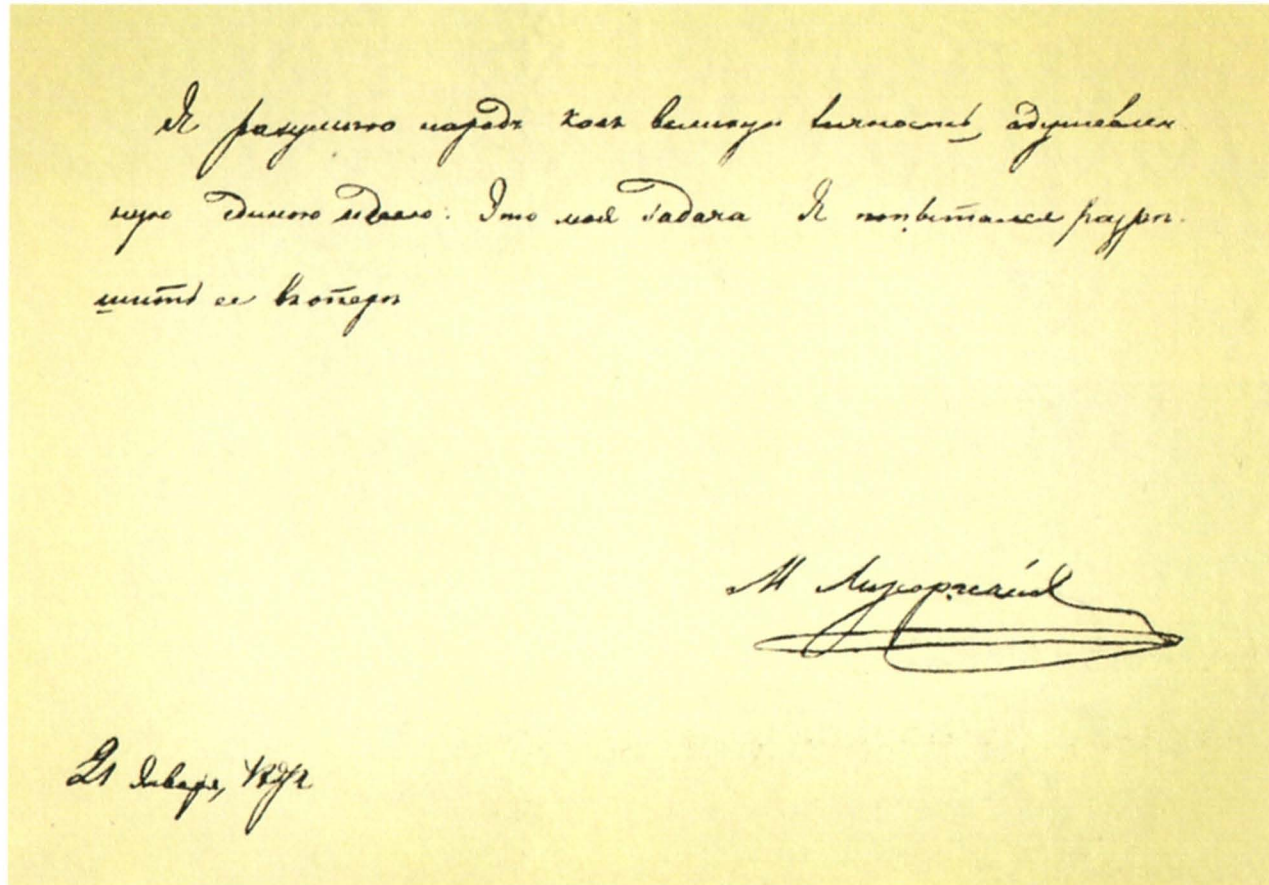 Я разумѣю народъ какъ великую личность, одушевлен
ную единою идеею. Это моя задача Я попытался разрѣ-
шить ее въ оперѣ
М Мусоргскій
21 Января, 1874